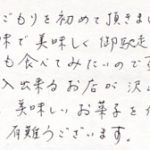 ごもりを初めて頂きまし
味で美味しく御馳走
も食べてみたいのです
入出来るお店が沢
美味しいお菓子を作
有難うございます。